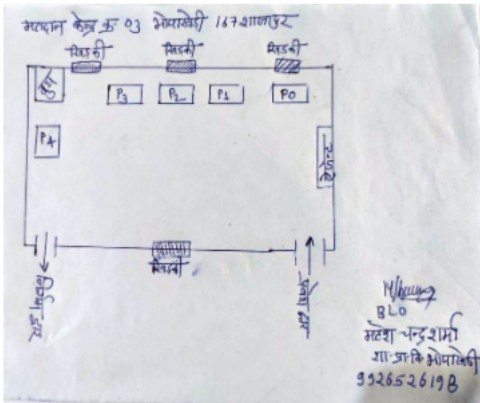 मतदान केन्द्र क्र. 03 भोपाखेडी 167 शाजापुर
खिडकी
खिडकी
खिडकी
बूथ
P3
P2
P1
P0
P4
खिडकी
निकास द्वार
प्रवेश द्वार
BLO
शर्मा
शा. प्रा. वि. भोपाखेडी
992652619B